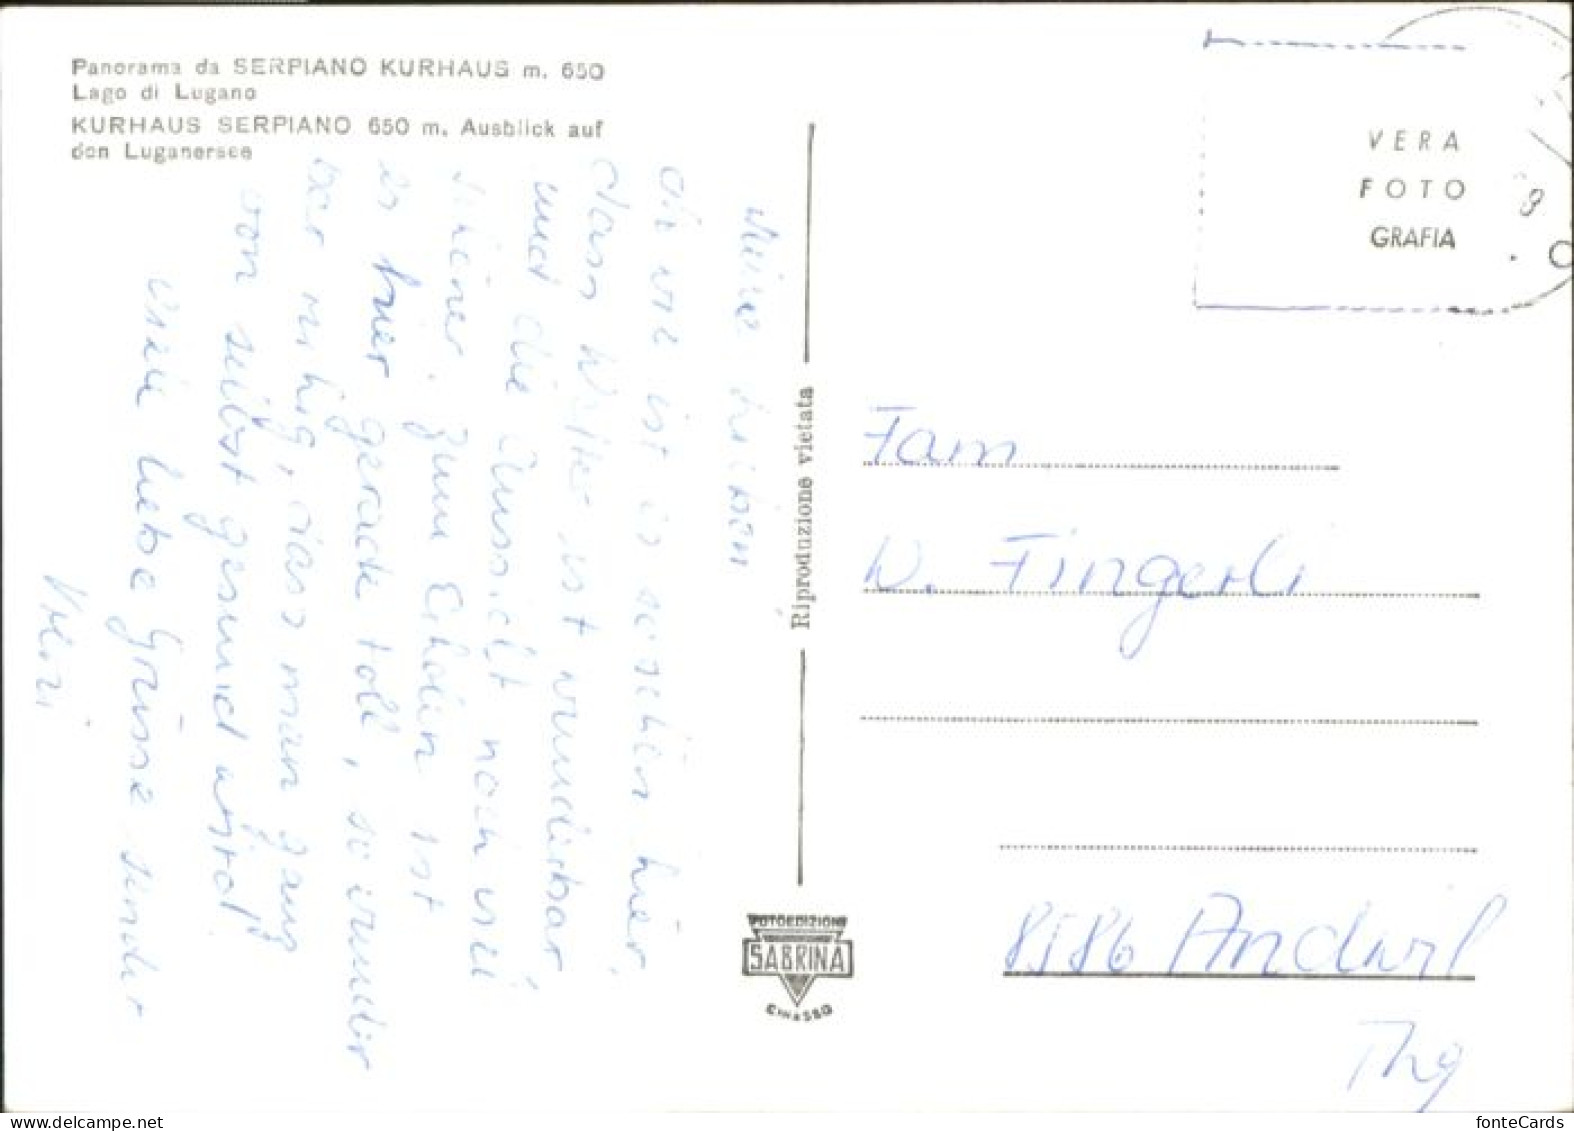 Panorama da SERPIANO KURHAUS m. 650
Lago di Lugano
KURHAUS SERPIANO 650 m. Ausblick auf
den Luganersee
Meine Lieben
Oh wie ist es so schön hier,
dass Wetter ist wunderbar,
und die Aussicht noch viel
schöner. Zum Erholen ist
es hier gerade toll, so wunder
bar ruhig, dass man ganz
von selbst gesund wird!
viele liebe Grüsse sendet
Vreni
Riproduzione vietata
FOTOEDIZIONI
SABRINA
CHIASSO
VERA
FOTO
GRAFIA
Fam
W. Fingerli
8586 Andwil
Thg
fonteCards